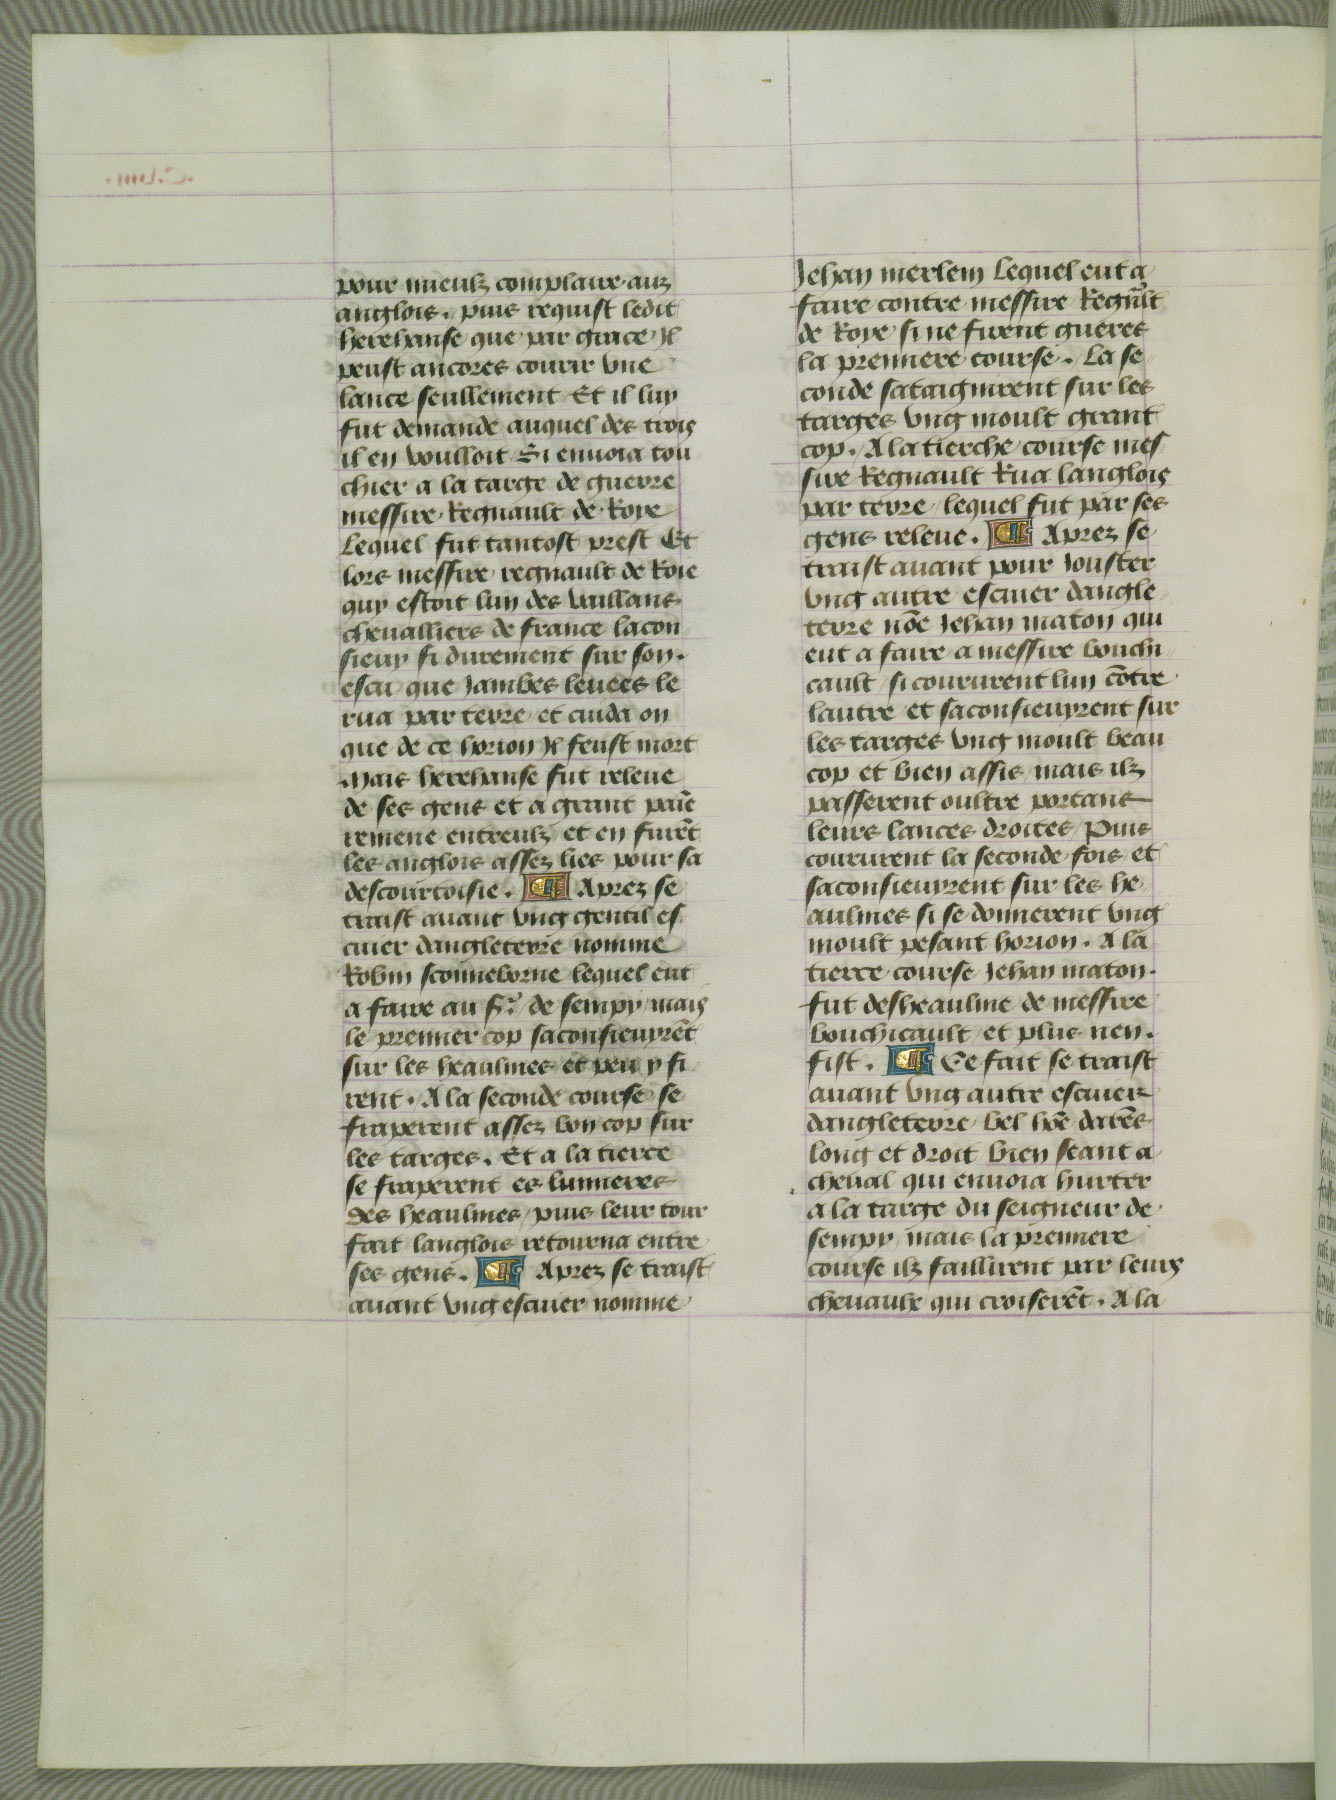 pour mieulz complaire auz
anglois. puis requist ledit
herehanse que par grace Il
peust ancores courir vne
lance seullement Et il luy
fut demande auquel des trois
il en voulloit Si enuoia tou
chier a la targe de guerre
messire Regnault de Roye
Lequel fut tantost prest Et
lors messire regnault de Roie
quy estoit lun des vaillans
cheualliers de france lacon
sieuy si durement sur son
escu que Jambes leuees le
rua par terre et cuida on
que de ce horion Il feust mort
Mais herehanse fut releue
de ses gens et a grant paīe
remene entreulz et en furēt
les anglois assez lies pour sa
descourtoisie. ¶ Aprez se
traist auant vng gentil es
cuier dangleterre nomme
Robin sconneborne lequel eut
a faire au sr. de sempy mais
le premier cop saconsieuyrēt
sur les heaulmes et peu y fi
rent. A la seconde course se
fraperent assez bon cop sur
les targes. Et a la tierce
se fraperent es lumieres
des heaulmes puis leur tour
fait langlois retourna entre
ses gens. ¶ Aprez se traist
auant vng escuier nomme
Jehan merlem Lequel eut a
faire contre messire Regnlt
de Roye si ne firent gueres
la premiere course. La se
conde sataignirent sur les
targes vng moult grant
cop. A la tierche course mes
sire Regnault Rua langlois
par terre lequel fut par ses
gens releue. ¶ Aprez se
traist auant pour Jouster
vng autre escuier dangle
terre nōe Jehan maton qui
eut a faire a messire bouchi
cault si coururent lun cōtre
lautre et saconsieuyrent sur
les targes vng moult beau
cop et bien assis mais ilz
passerent oultre portans
leurs lances droites Puis
coururent la seconde fois et
saconsieuyrent sur les he
aulmes si se donnerent vng
moult pesant horion. A la
tierce course Jehan maton
fut desheaulme de messire
bouchicault et plus nen
fist. ¶ Ce fait se traist
auant vng autre escuier
dangleterre bel hōe darēs
long et droit bien seant a
cheual qui enuoia hurter
a la targe du seigneur de
sempy mais la premiere
course ilz faillirent par leurs
cheuaulx qui croiserēt. A la